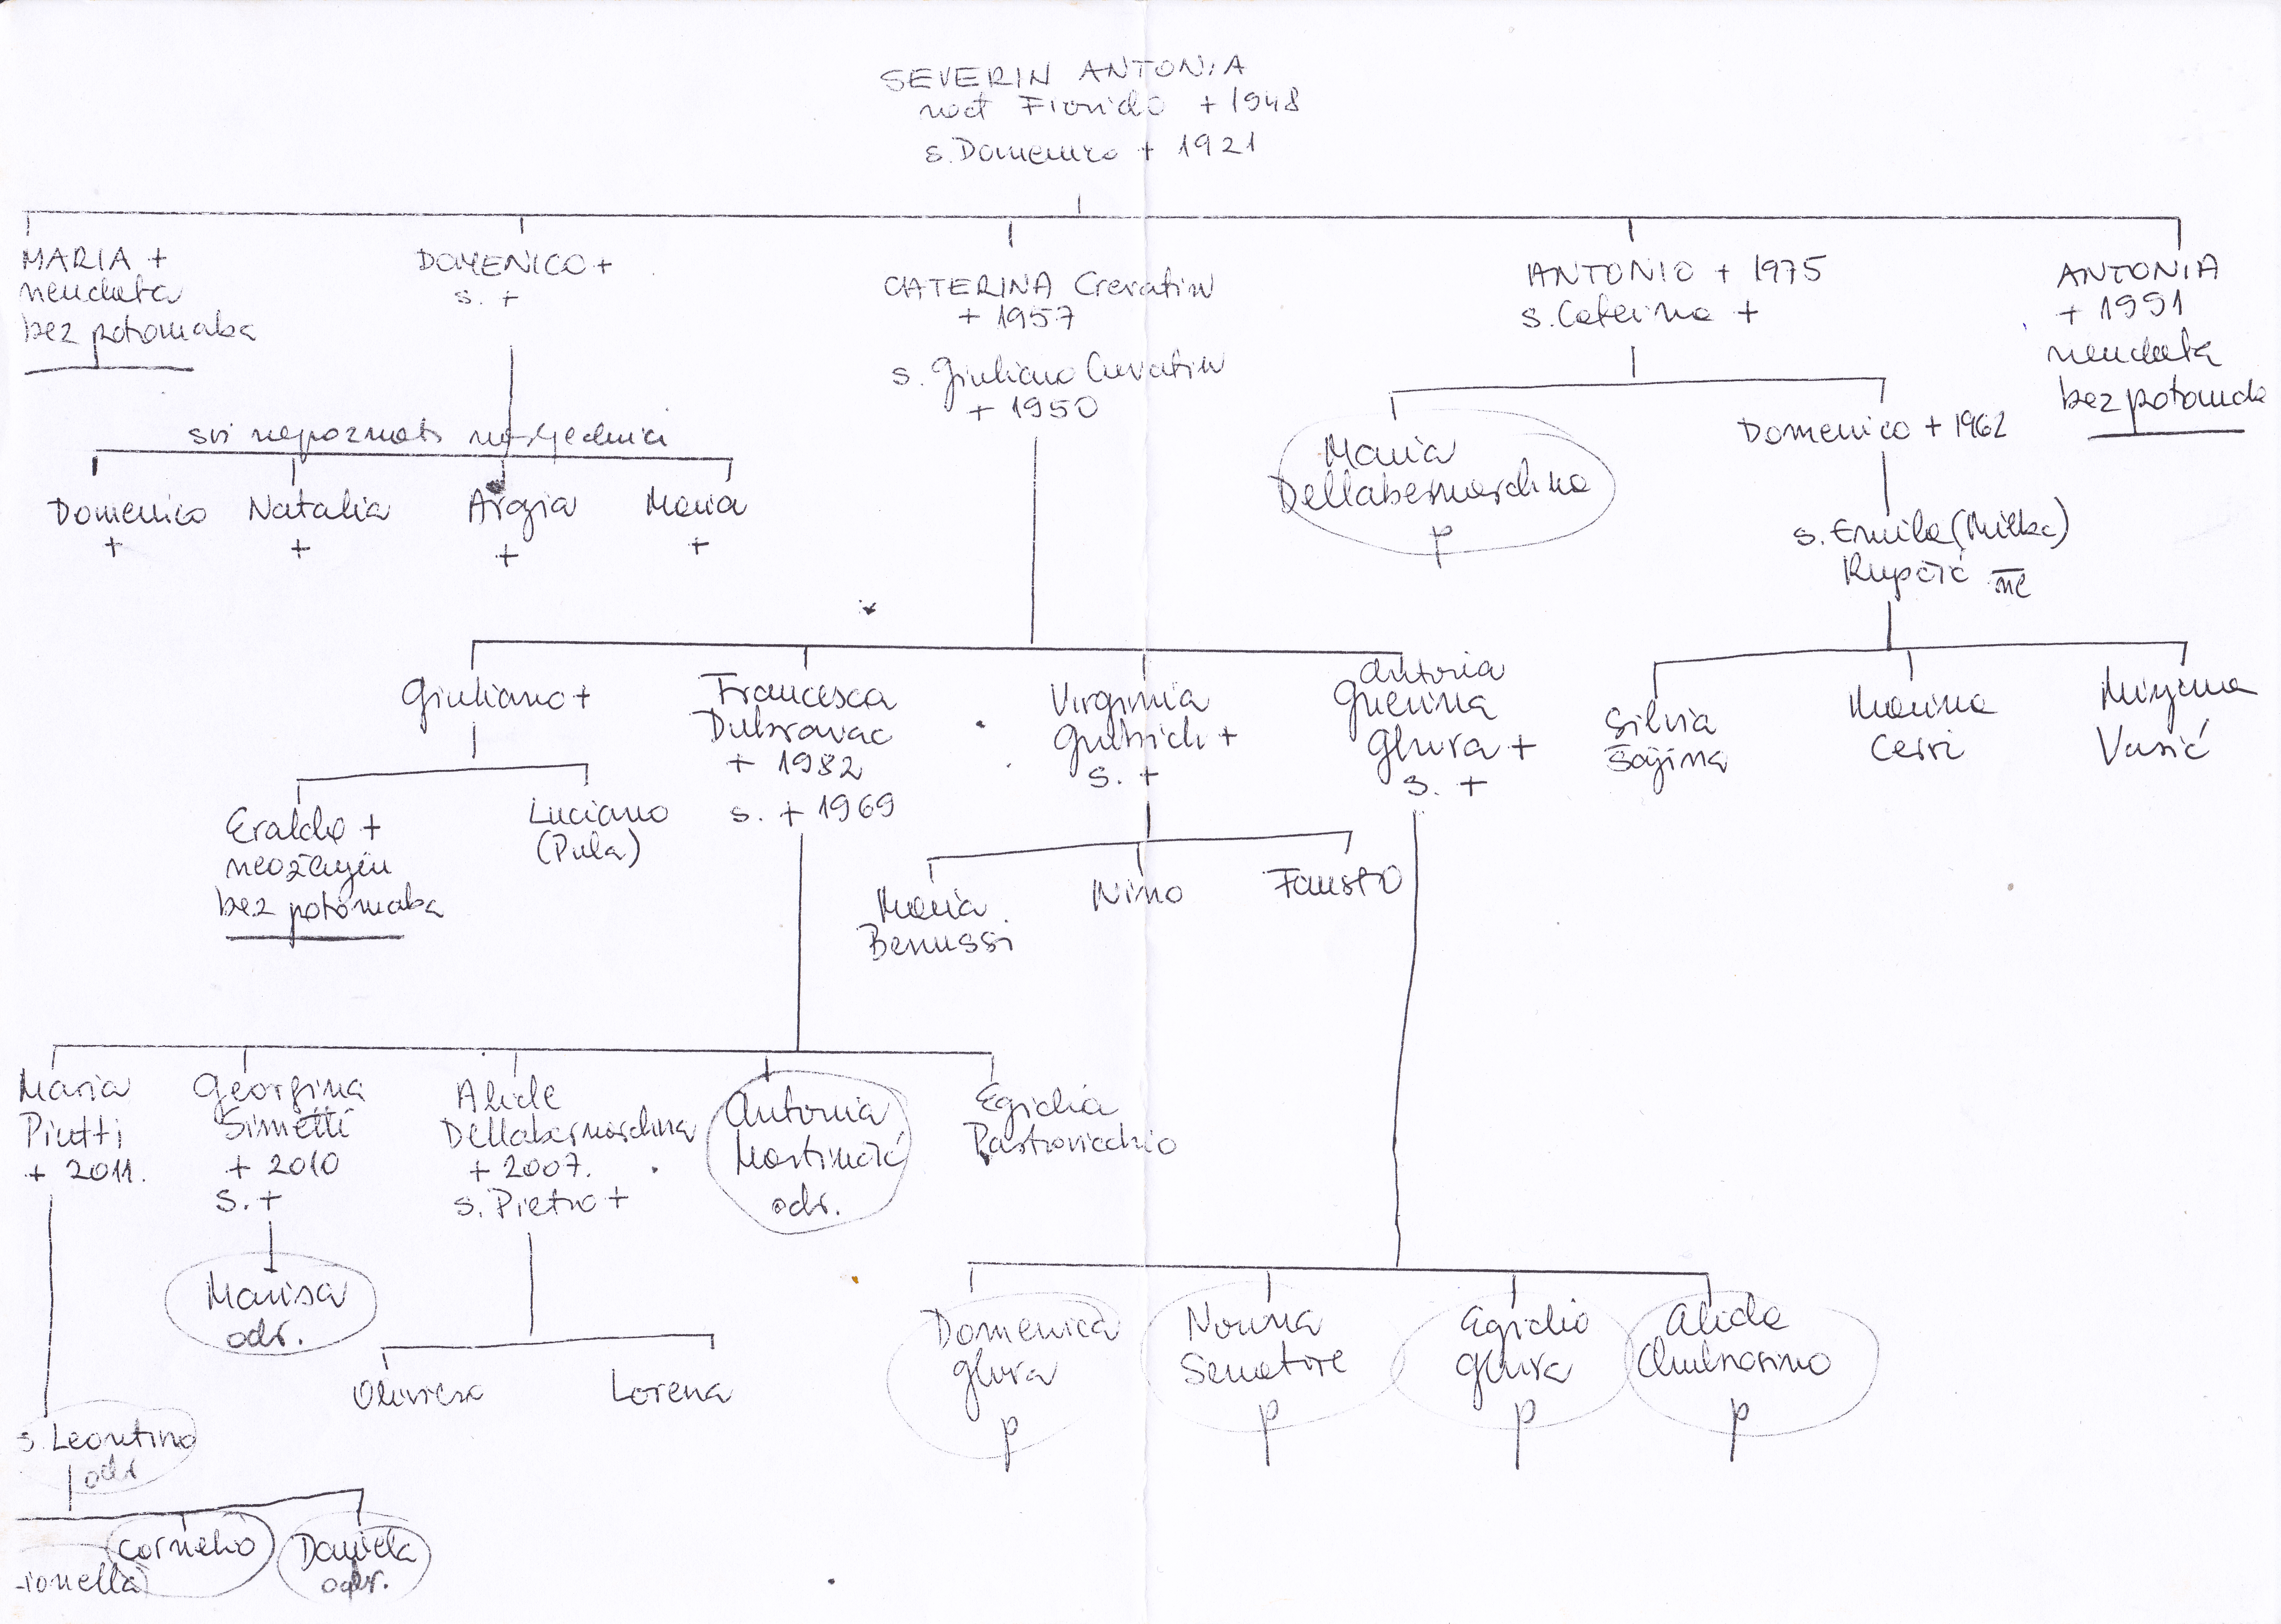 SEVERIN ANTONIA
rođ Fiorido + 1948
s. Domenico + 1921
MARIA +
neudata
bez potomaka
DOMENICO +
s. +
CATERINA Crevatin
+ 1957
s. Giuliano Crevatin
+ 1950
ANTONIO + 1975
s. Caterina +
ANTONIA
+ 1991
neudata
bez potomaka
svi nepoznati nasljednici
Domenico
+
Natalia
+
Argia
+
Maria
+
Maria
Dellabernardina
p
Domenico + 1962
s. Emila (Milka)
Rupčić ne
Giuliano +
Francesca
Dubravac
+ 1982
s. + 1969
Virginia
s. +
Antonia
Guerina
Ghira +
s. +
Silvia
Šajina
Marina
Cerri
Mirjana
Vasić
Eraldo +
neoženjen
bez potomaka
Luciano
(Pula)
Maria
Benussi
Nino
Fausto
Maria
Piutti
+ 2011.
Georgina
Simetti
+ 2010
s. +
Alide
Dellabernardina
+ 2007.
s. Pietro +
Antonia
Martinčić
odr.
Egidia
Pastrovicchio
Marisa
odr.
Oliviera
Lorena
Domenica
Ghira
p
Norina
Senatore
p
Egidio
Ghira
p
Alida
p
s. Leontino
odr
ionella
Cornelio
Daniela
odr.